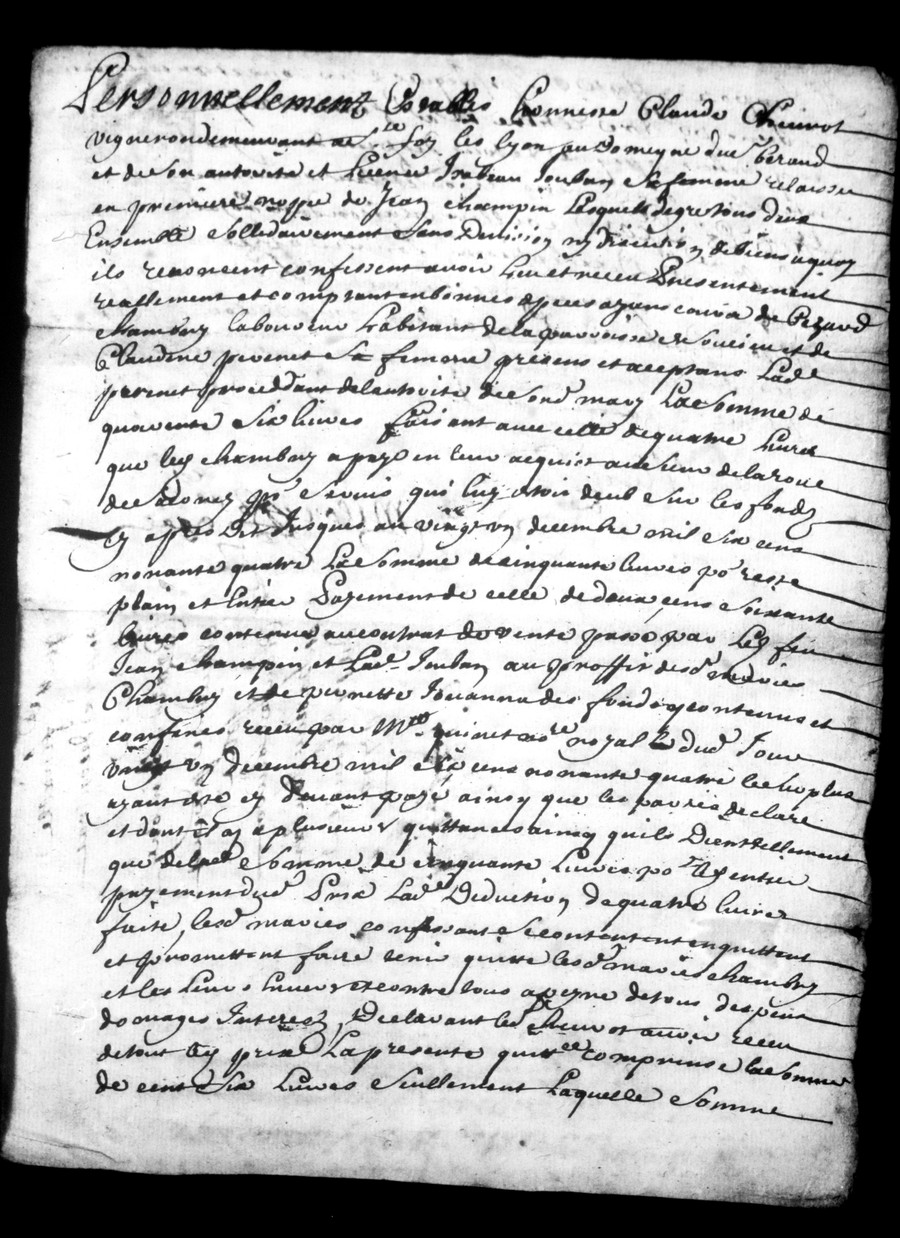 Personnellement Establis honneste Claude Chuirot
vigneron demeurant a Ste foy les lyon au domeyne du Sr beraud
et de son autorité et licence Isabeau Jouban sa femme relaissee
en premiere nopce de Jean Champin Lesquels de gre tous deux
Ensemble sollidairement sans Division ny discution de biens a quoy
ils renoncent confessent avoir heu et receu Presentement
reallement et comptant en bonnes especes ayans cours de
Chambry laboureur habitant de la parroisse de et de
Claudine perenet sa femme presens et aceptans Lade
perenet proceddant de lautorité de sond mary La somme de
quarente six livres faisant avec celle de quatre livres
que led Chambry a paye en leur acquict au sieur de la roue
de servis qui luy estoit deub sur les fonds
cy apres Dit Jusques au vingt un decembre mil six cens
nonante quatre La somme de cinquante livres po reste
plain et Entier Payement de celle de deux cens soixante
livres contenue au contrat de vente passé par Led feu
Jean Champin et Lade Jouban au proffit desd maries
Chambry et de pernette Jouanna des fonds y contenus et
confines receu par Mre guinet nore royal le dud Jour
vingt un Decembre mil six cens nonante quatre le surplus
ayant esté cy Devant payé ainsy que les parties declare
et dont il y a plusieurs quittances ainsy quils Dient tellement
que de lade somme de cinquante Livres po entier
payement dud Prix Lade Deduction de quatre livres
faite, lesd maries confessants se contentent en quittent
et promettent faire tenir quitte lesd maries Chambry
et les Leurs Envers et contre tous a peyne de tous despens
domages Interez, Declarant led Chuirot avoir receu
de tout led prix La presente quittce comprinse la somme
de cent six Livres seullement Laquelle somme